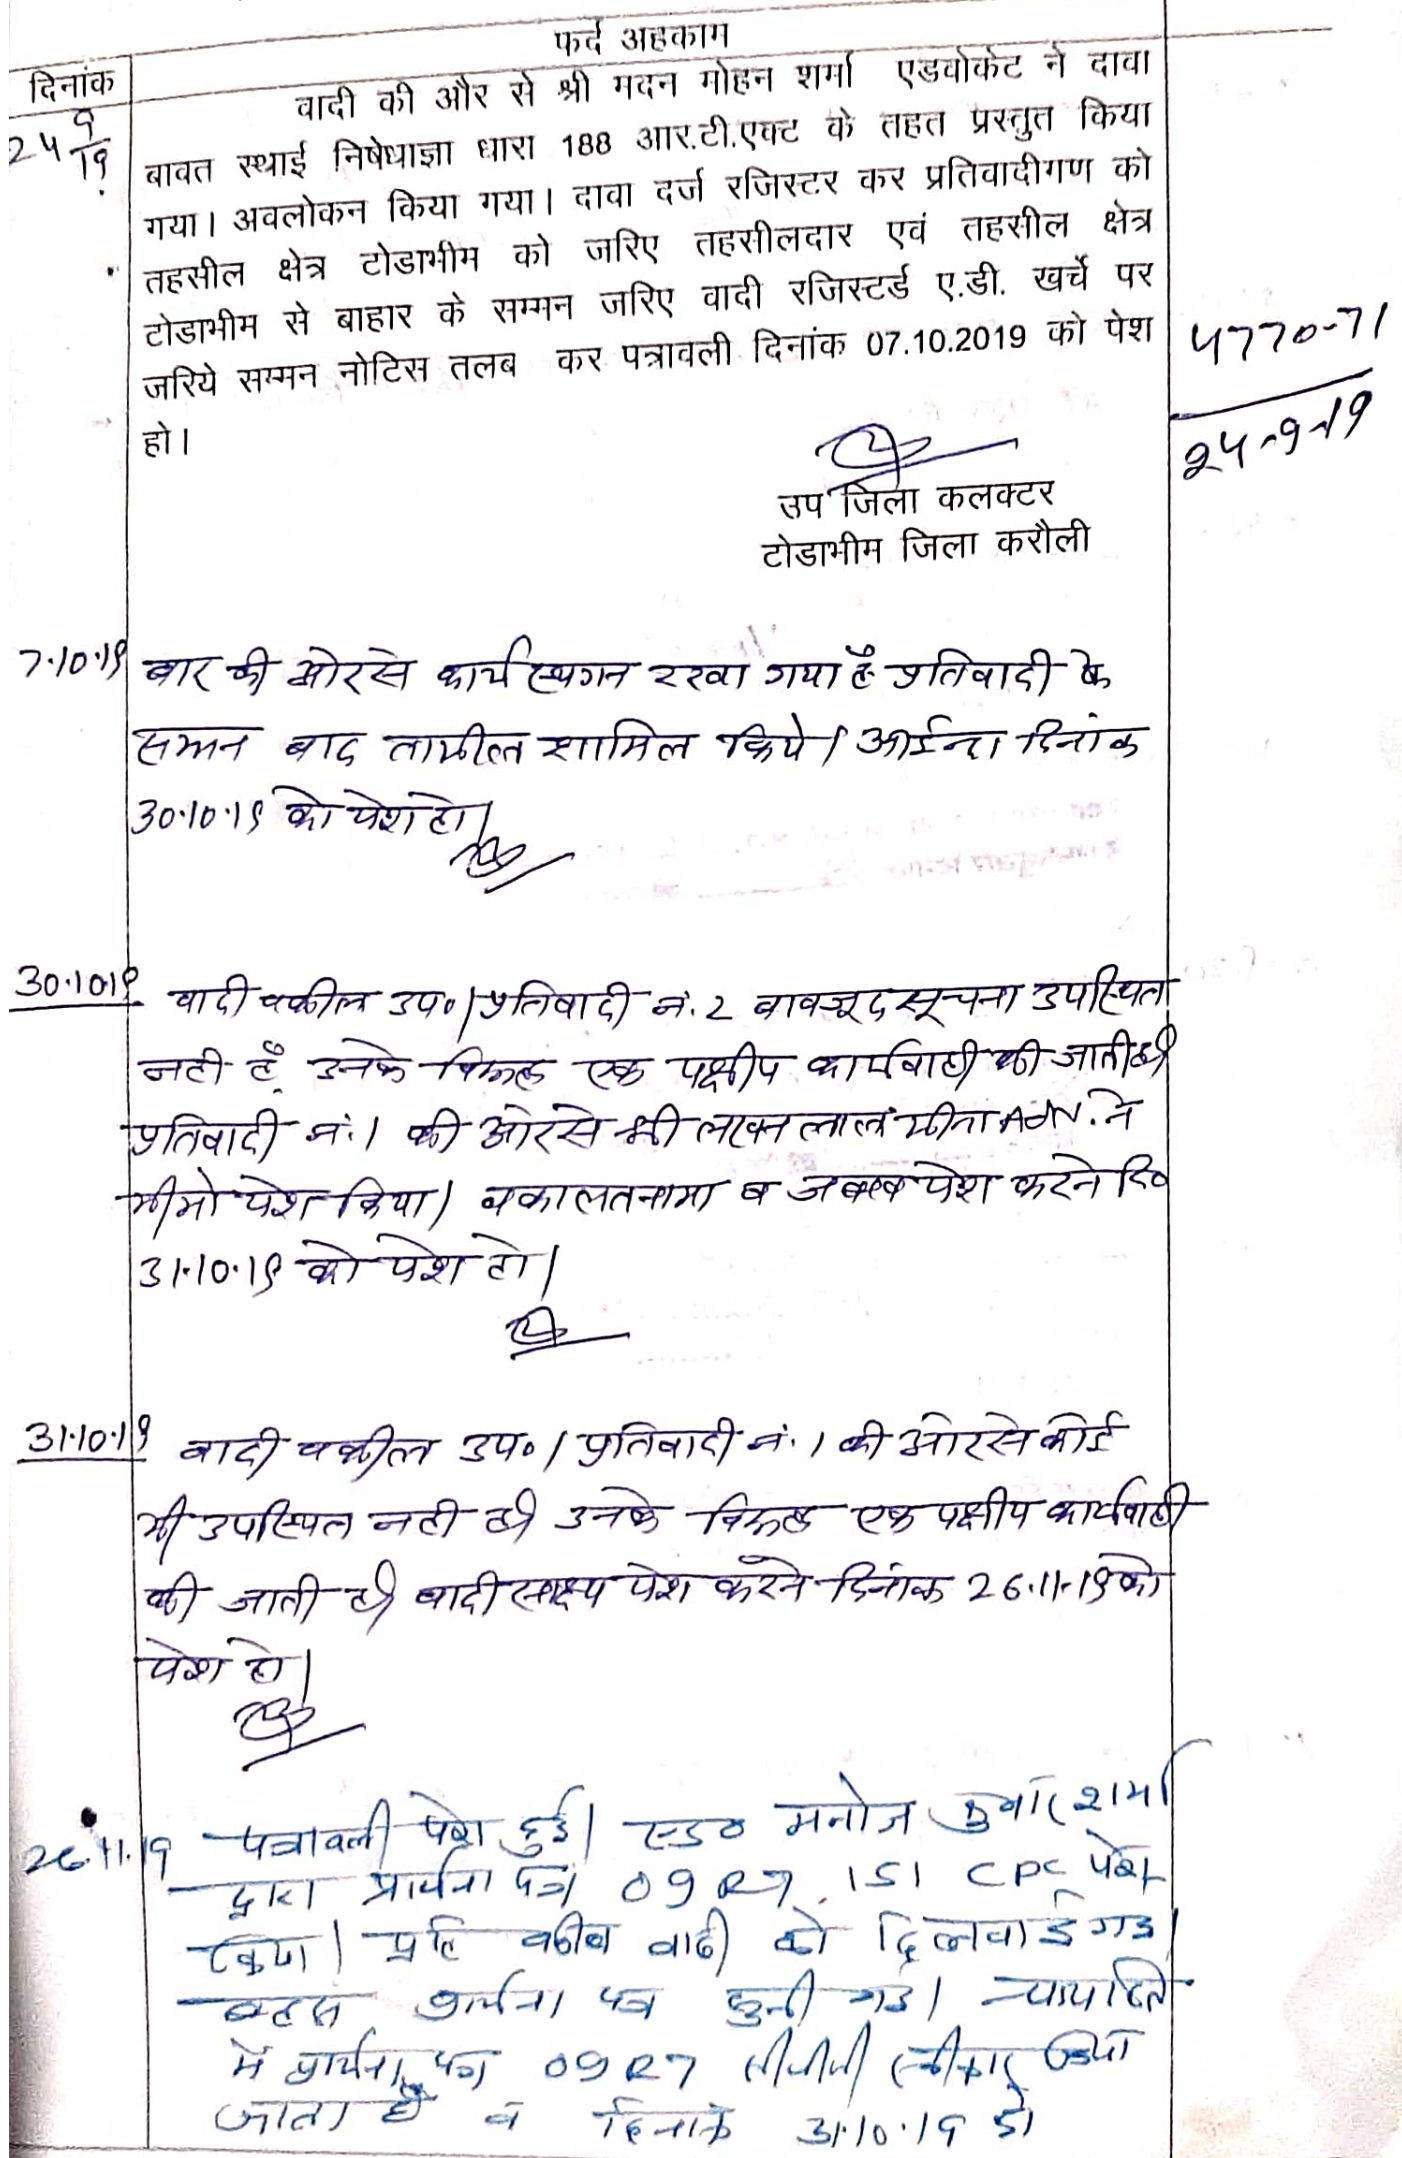 फर्द अहकाम
दिनांक
24 9/19
वादी की और से श्री मदन मोहन शर्मा एडवोकेट ने दावा
बावत स्थाई निषेधाज्ञा धारा 188 आर.टी.एक्ट के तहत प्रस्तुत किया
गया। अवलोकन किया गया। दावा दर्ज रजिस्टर कर प्रतिवादीगण को
तहसील क्षेत्र टोडाभीम को जरिए तहसीलदार एवं तहसील क्षेत्र
टोडाभीम से बाहार के सम्मन जरिए वादी रजिस्टर्ड ए.डी. खर्चे पर
जरिये सम्मन नोटिस तलब कर पत्रावली दिनांक 07.10.2019 को पेश
हो।
4770-71
24-9-19
उप जिला कलक्टर
टोडाभीम जिला करौली
7.10.19 बार की ओर से कार्य स्थगन रखा गया है प्रतिवादी के
सम्मन बाद तामील शामिल किये। आईन्दा दिनांक
30.10.19 को पेश हो।
30.10.19 वादी वकील उप०। प्रतिवादी नं. 2 बावजूद सूचना उपस्थित
नही है उनके विरूद्ध एक पक्षीय कार्यवाही की जाती है।
प्रतिवादी नं. 1 की ओर से श्री लखन लाल मीना Adv. ने
मीमो पेश किया। वकालतनामा व जबाब पेश करने दि०
31.10.19 को पेश हो।
31.10.19 वादी वकील उप०। प्रतिवादी नं. 1 की ओर से कोई
भी उपस्थित नही है। उनके विरूद्ध एक पक्षीय कार्यवाही
की जाती है। वादी साक्ष्य पेश करने दिनांक 26.11.19 को
पेश हो।
26.11.19 पत्रावली पेश हुई। एड० मनोज कुमार शर्मा
द्वारा प्रार्थना पत्र 09 R7, 151 CPC पेश
किया। प्रति वकील वादी को दिलवाई गई।
बहस प्रार्थना पत्र सुनी गई। न्यायहित
में प्रार्थना पत्र 09 R7 सीपीसी स्वीकार किया
जाता है व दिनांक 31.10.19 को